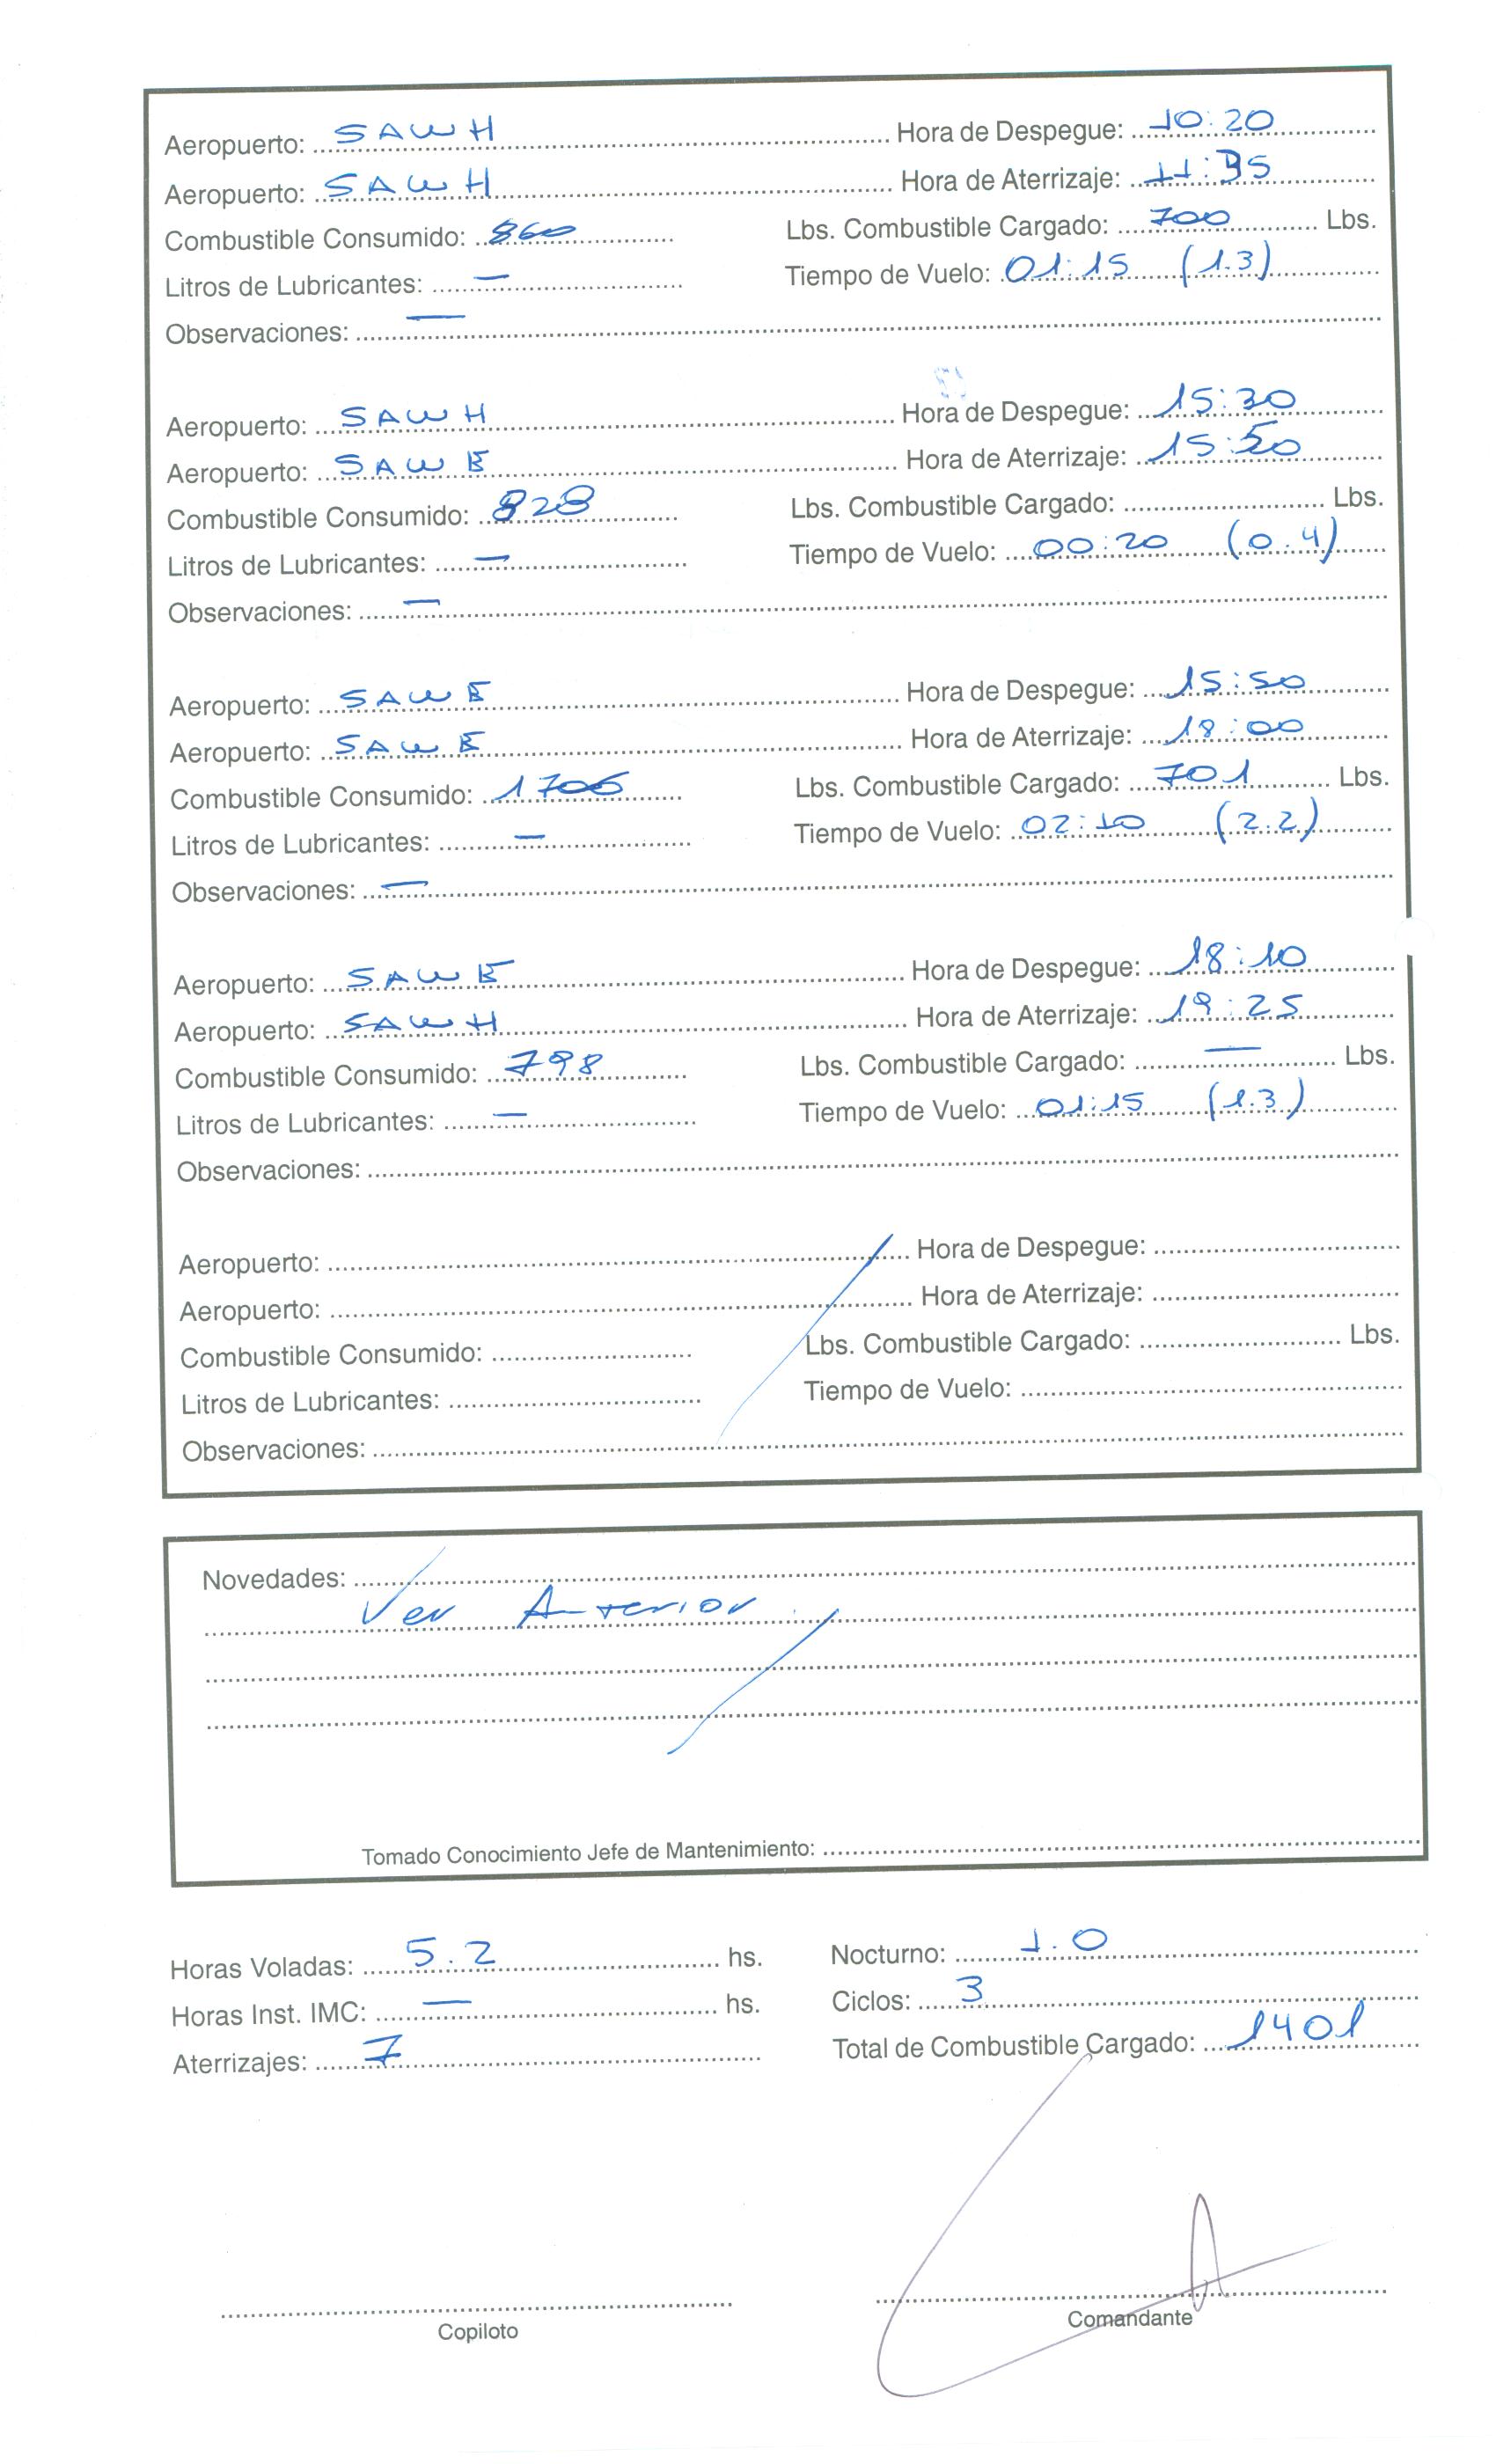 Aeropuerto: SAWH Hora de Despegue: 10:20
Aeropuerto: SAWH Hora de Aterrizaje: 11:35
Combustible Consumido: 860 Lbs. Combustible Cargado: 700 Lbs.
Litros de Lubricantes: — Tiempo de Vuelo: 01:15 (1.3)
Observaciones: —
Aeropuerto: SAWH Hora de Despegue: 15:30
Aeropuerto: SAWE Hora de Aterrizaje: 15:50
Combustible Consumido: 828 Lbs. Combustible Cargado: Lbs.
Litros de Lubricantes: — Tiempo de Vuelo: 00:20 (0.4)
Observaciones: —
Aeropuerto: SAWE Hora de Despegue: 15:50
Aeropuerto: SAWE Hora de Aterrizaje: 18:00
Combustible Consumido: 1706 Lbs. Combustible Cargado: 701 Lbs.
Litros de Lubricantes: — Tiempo de Vuelo: 02:10 (2.2)
Observaciones: —
Aeropuerto: SAWE Hora de Despegue: 18:10
Aeropuerto: SAWH Hora de Aterrizaje: 19:25
Combustible Consumido: 798 Lbs. Combustible Cargado: — Lbs.
Litros de Lubricantes: — Tiempo de Vuelo: 01:15 (1.3)
Observaciones:
Aeropuerto: Hora de Despegue:
Aeropuerto: Hora de Aterrizaje:
Combustible Consumido: Lbs. Combustible Cargado: Lbs.
Litros de Lubricantes: Tiempo de Vuelo:
Observaciones:
Novedades:
Ver Anterior.
Tomado Conocimiento Jefe de Mantenimiento:
Horas Voladas: 5.2 hs. Nocturno: 1.0
Horas Inst. IMC: — hs. Ciclos: 3
Aterrizajes: 7 Total de Combustible Cargado: 1401
Copiloto Comandante